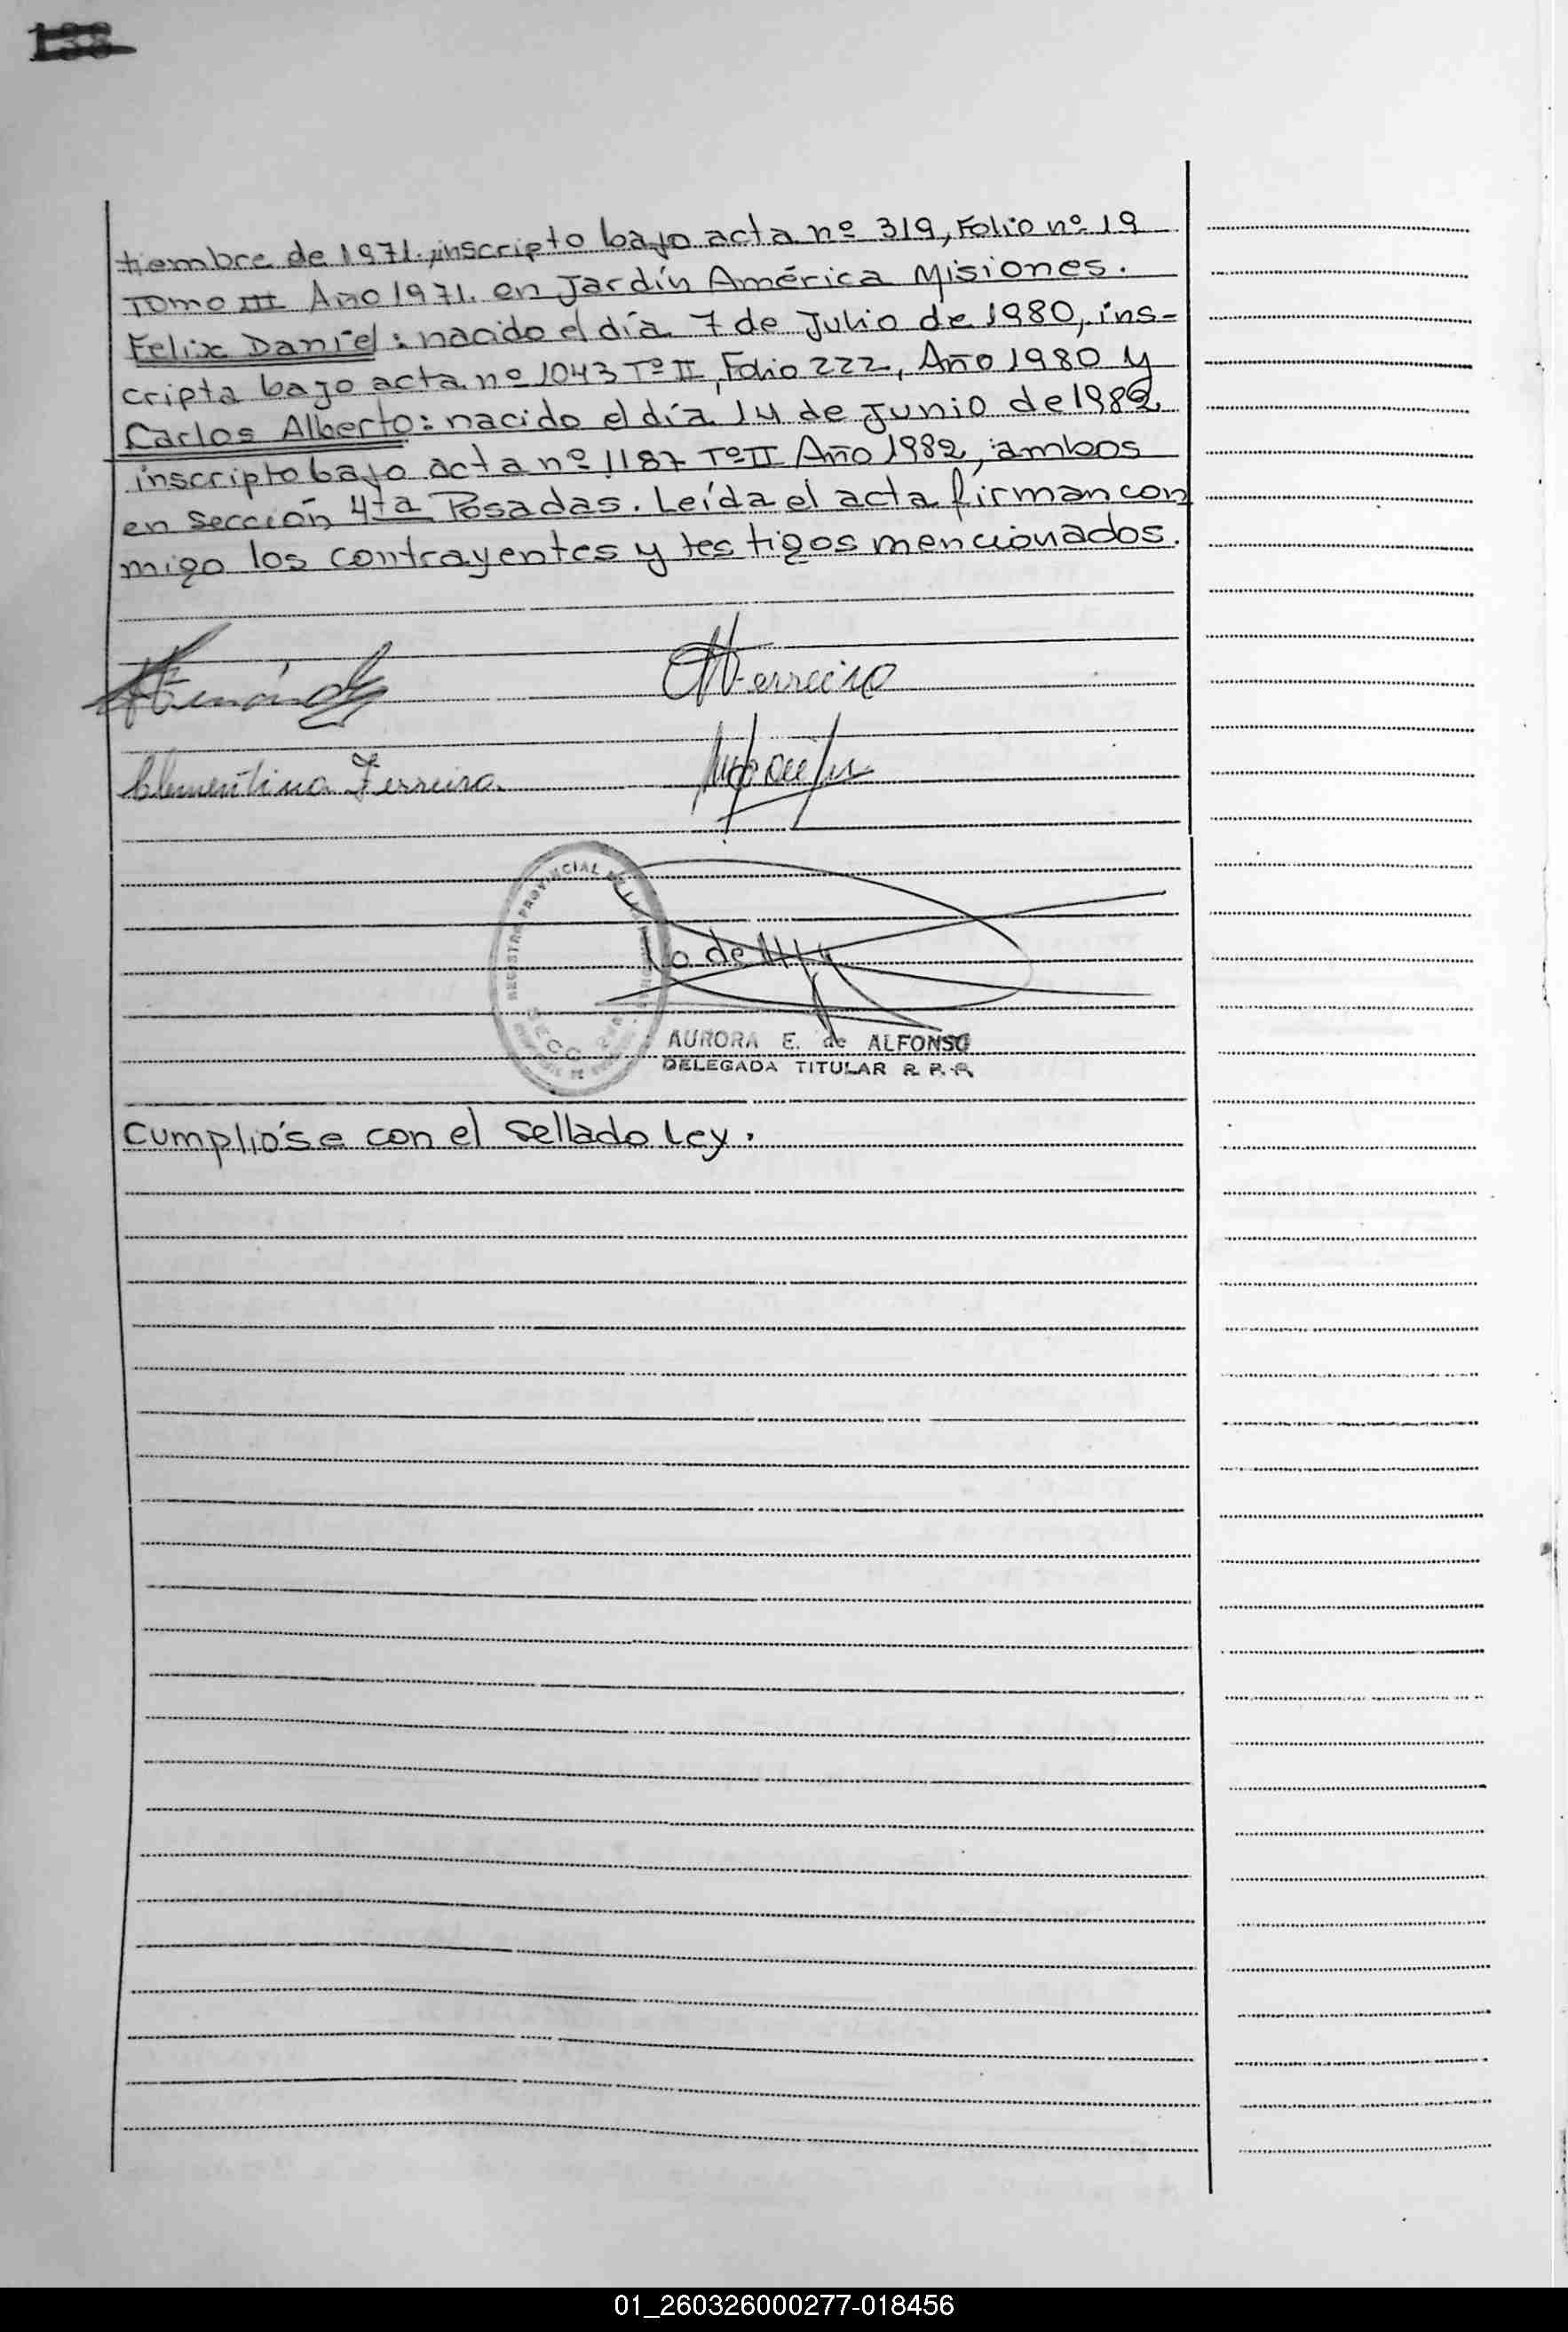 tiembre de 1971. inscripto bajo acta nº 319, Folio nº 19
Tomo III Año 1971. en Jardín América Misiones.
Felix Daniel: nacido el día 7 de Julio de 1980, ins-
cripta bajo acta nº 1043 Tº II, Folio 222, Año 1980 y
Carlos Alberto: nacido el día 14 de Junio de 1982
inscripto bajo acta nº 1187 Tº II Año 1982, ambos
en Sección 4ta Posadas. Leída el acta firman con
migo los contrayentes y testigos mencionados.
Ferreiro
Clementina Ferreira.
REGISTRO PROVINCIAL DE LAS
AURORA E. de ALFONSO
DELEGADA TITULAR R. P. P.
Cumplióse con el sellado Ley.
01_260326000277-018456